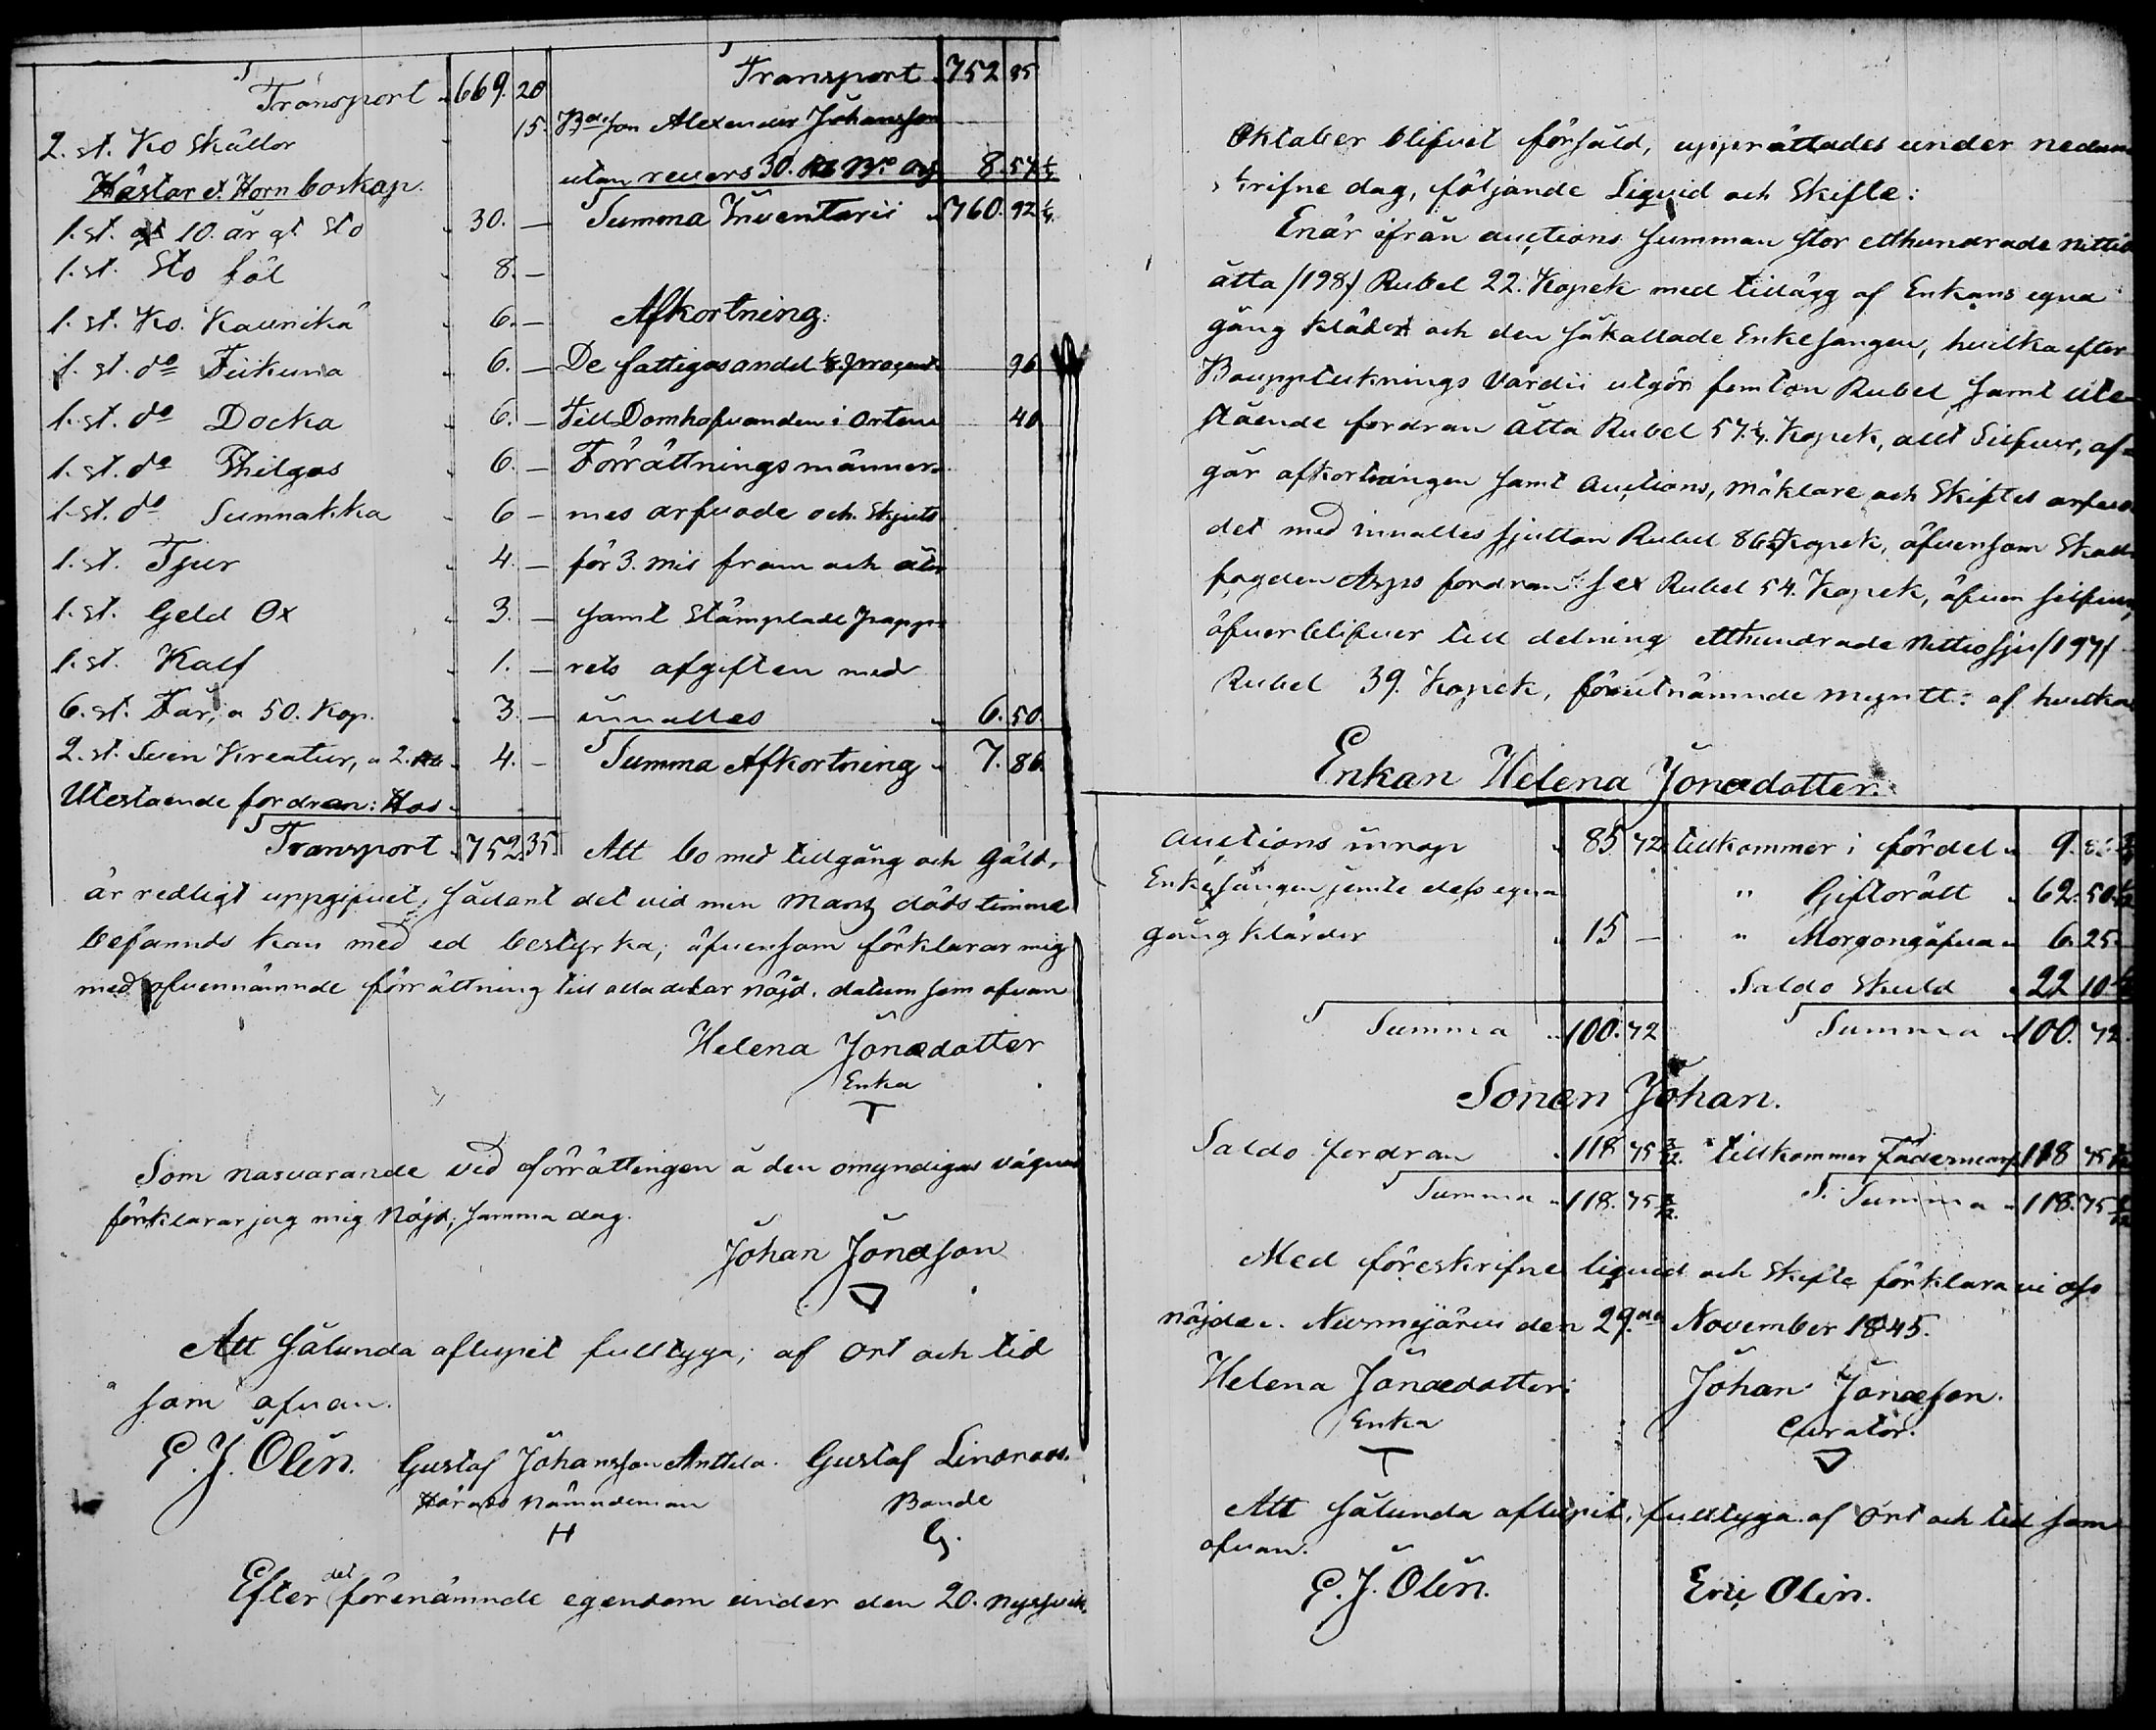 Transport 669. 20
2. st. Ko Skällor 15.
Hästar et Horn boskap.
1. st. 10. år gt Sto 30. —
1. st. Sto föl 8. —
1. st. Ko. Kaunika 6. —
1. st. do Fiikuna 6. —
1. st. do Docka 6. —
1. st. do Philgas 6. —
1. st. do Sunnakka 6 —
1. st. Tjur 4. —
1. st. Geld Ox 3. —
1. st. Kalf 1. —
6. st. Får, a 50. Kop. 3. —
2. st. Svin Kreatur, a 2. Rb 4. —
Utestående fordran: Hos
Transport 752. 35.
Transport 752 35
Alexander Johansson
utan revers 30. 8. 57 1/7
Summa Inventarii 760. 92 1/7
Afkortning:
De fattigas andel 1/8 procent 96
Till Domhafvanden i Orten 40
Förrättningsmänner-
nes arfvode och Skjuts
för 3. mil fram och åter
samt Stämplade pappe-
rets afgiften med
innalles 6. 50.
Summa Afkortning 7. 86.
Att bo med tillgång och Gäld,
är redligt uppgifvet, sådant det vid min Mans döds timma
befannds kan med ed bestyrka; äfvensom förklarar mig
med ofvennämnde förrättning till alla delar nöjd. datum som ofvan
Helena Jonædotter
Enka
Som närvarande vid förrättingen å den omyndigas vägnar
förklarar jag mig Nöjd, samma dag.
Johan Jonæson
Att sålunda aflupit fulltyga; af Ort och tid
som ofvan.
E. J. Olin. Gustaf Johansson Anttila. Gustaf Lindroos.
Härads Nämndeman Bonde
H G.
det
Efter förenämnde egendom under den 20. nyssvik.
Oktober blifvit försåld, upprättades under nedan
skrifne dag, följande Liqvid och Skifte:
Enär ifrån auctions summan stor etthundrade Nittio
åtta /198/ Rubel 22. Kopek med tillägg af Enkans egna
gång kläder och den såkallade Enkesängen, hvilka efter
Bouppteknings Värdii utgör femton Rubel, samt ute-
stående fordran Åtta Rubel 57 1/7. Kopek, allt Silfver, af-
går afkortningen samt Auctions, mäklare och Skiftes arfvo-
det med innalles sjutton Rubel 86 Kopek, äfvensom Skatt-
fogden Arps fordran sex Rubel 54. Kopek, äfven silfver,
öfverblifver till delning etthundrade Nittiosju /197/
Rubel 39. Kopek, förutnämnde mynt: af hvilka
Enkan Helena Jonædotter.
Auctions inrop 85. 72
Enkesängen jemte dess egna
gångkläder 15 —
Summa 100. 72
tillkommer i fördel 9.
" Giftorätt 62. 50 1/2
" Morgongåfva 6. 25.
Saldo Skuld 22 10
Summa 100. 72.
Sonen Johan.
Saldo fordran 118 75 tillkommer Fädernearf 118 75
Summa 118. 75 Summa 118. 75
Med föreskrifne liquid och Skifte förklara vi oss
nöjde. Nurmijärvi den 29.de November 1845.
Helena Jonædotter: Johan Jonæson.
Enka Curator.
Att sålunda aflupit, fulltyga af Ort och tid som
ofvan.
E. J. Olin. Eric Olin.